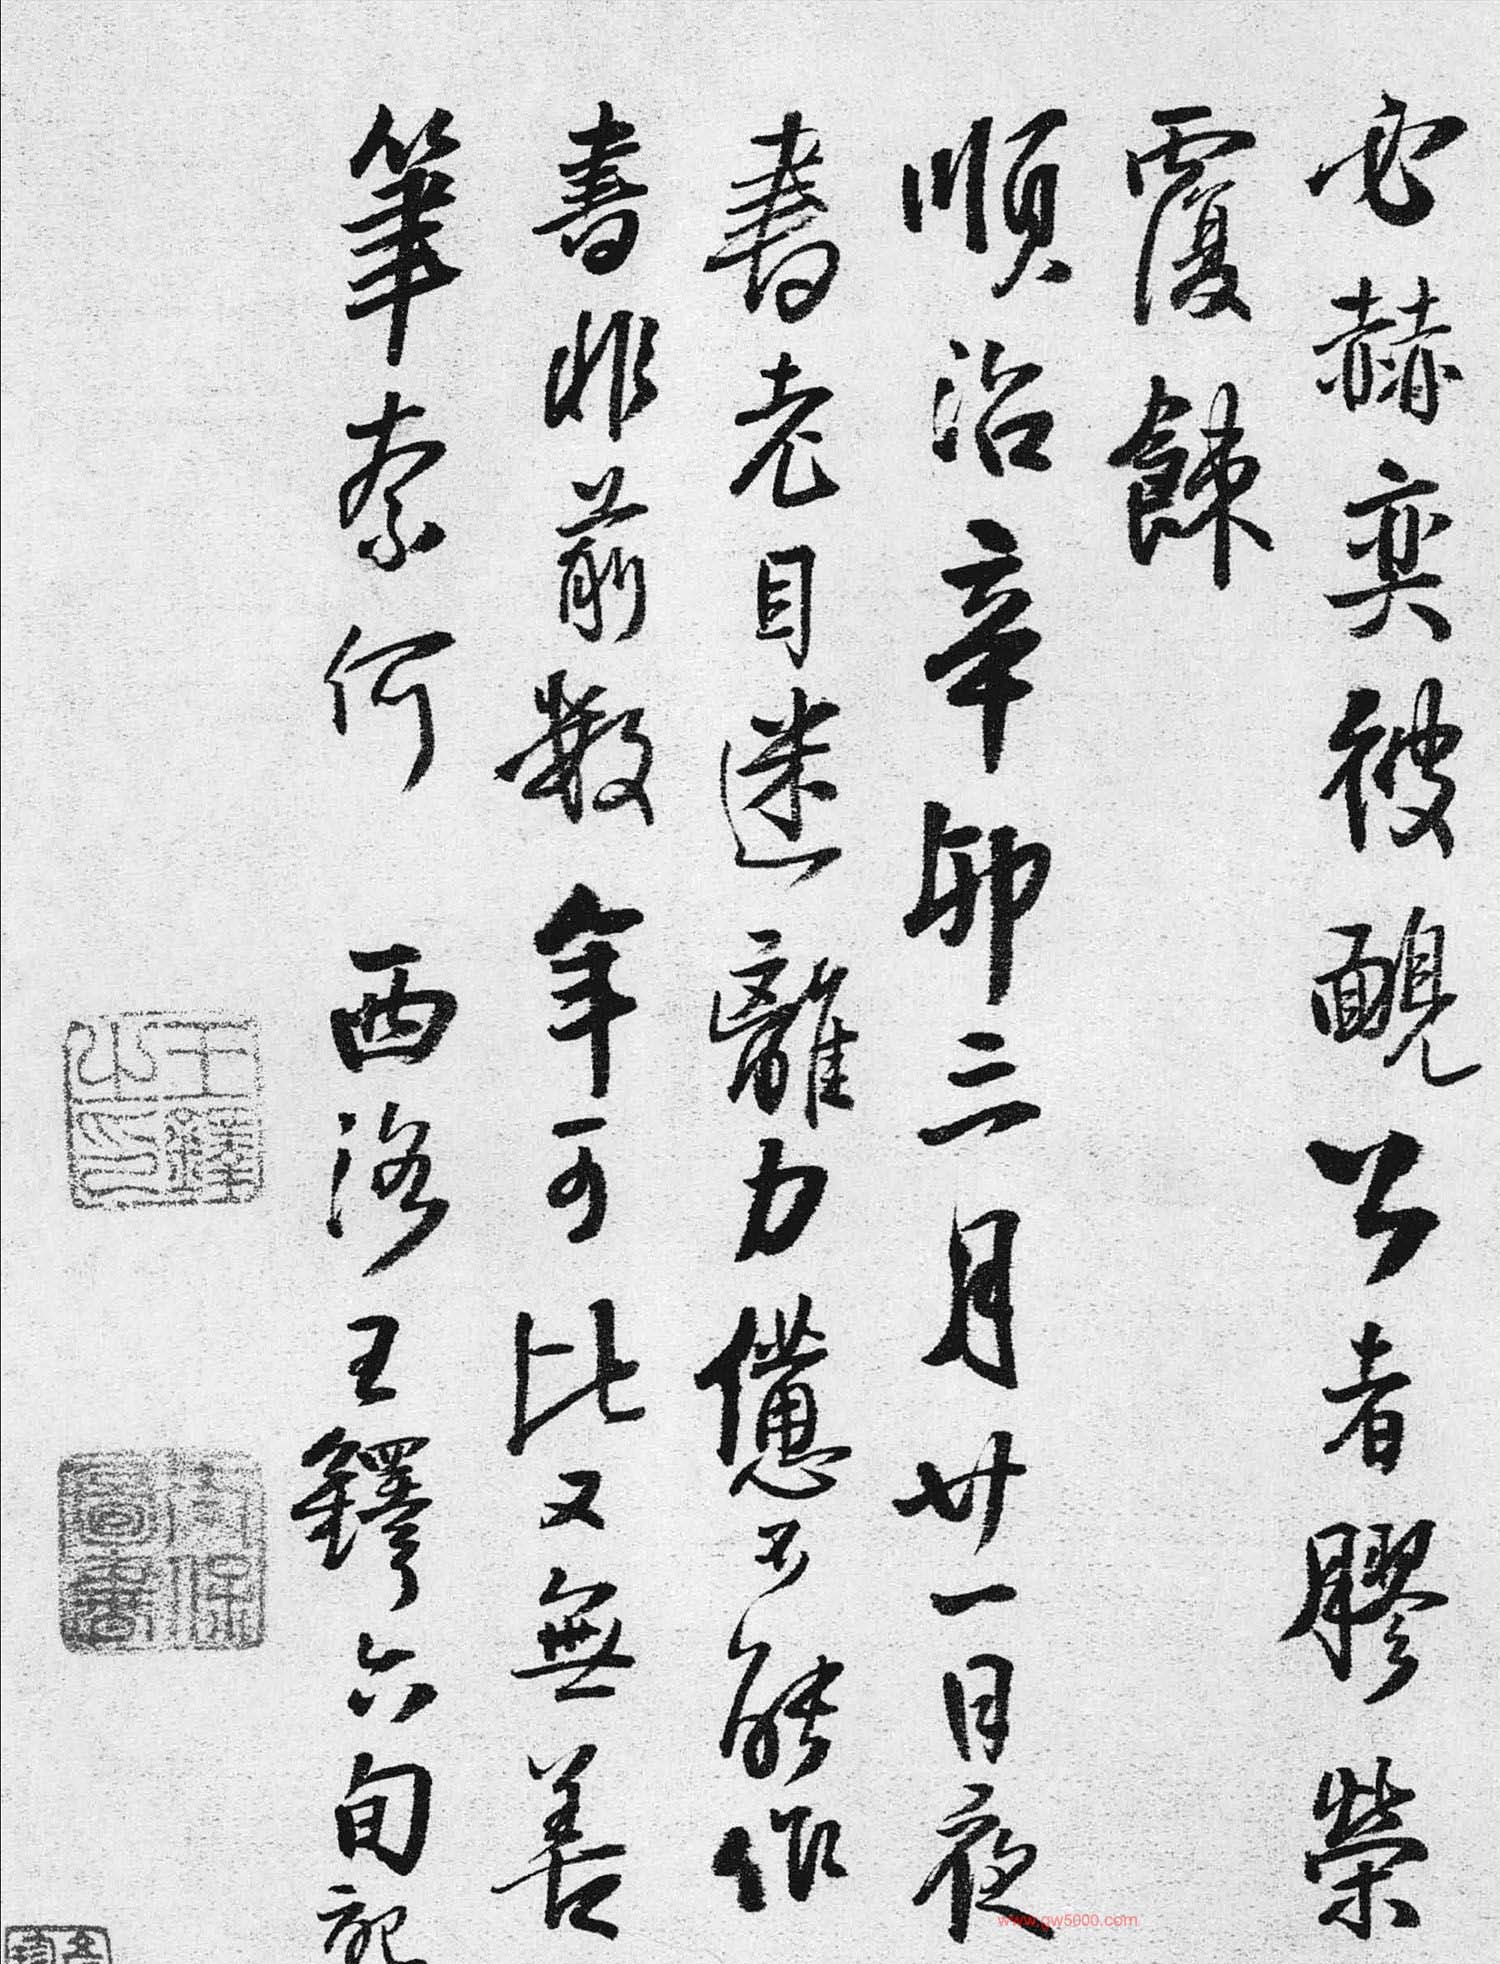 赫奕彼靦公者膠榮
覆餗
順治辛卯三月廿一日夜
書老目迷離力憊不能作
書非前數年可比又無善
筆奈何 西洛王鐸六旬記
王鐸之印
保圖書
www.gw5000.com